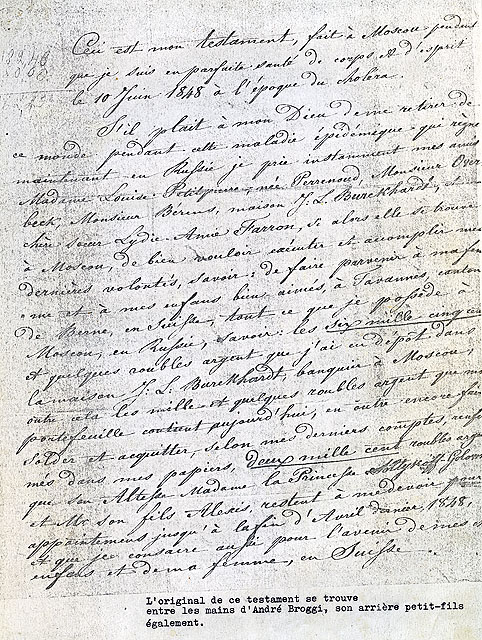 Ceci est mon testament, fait à Moscou pendant
que je suis en parfaite santé de corps et d'esprit
le 10 Juin 1848 à l'époque du choléra.
S'il plait à mon Dieu de me retirer de
ce monde pendant cette maladie épidémique qui règne
maintenant en Russie je prie instamment mes amis
Madame Louise Petitpierre, née Perrenoud, Monsieur Over
beck, Monsieur Berens, maison J. L. Burckhardt, et
chère soeur Lydie-Anne Farron, si alors elle se trouve
à Moscou, de bien vouloir exécuter et accomplir mes
dernières volontés, savoir: de faire parvenir à ma fem
me et à mes enfans bien aimés, à Tavannes, canton
de Berne, en Suisse, tout ce que je possède à
Moscou, en Russie, savoir: les six mille cinq cen
et quelques roubles argent que j'ai en dépôt dans
la maison J. L. Burckhardt, banquier à Moscou,
outre cela les mille et quelques roubles argent que m
portefeuille contient aujourd'hui, en outre encore faire
solder et acquitter, selon mes derniers comptes, renfer
més dans mes papiers, deux mille cent roubles argent
que son Altesse Madame la Princesse Golovin
et Mr son fils Alexis, restent à me devoir pour
appointemens jusqu'à la fin d'Avril d'année 1848,
et que je consacre aussi pour l'avenir de mes
enfans et de ma femme, en Suisse.
L'original de ce testament se trouve
entre les mains d'André Broggi, son arrière petit-fils
également.